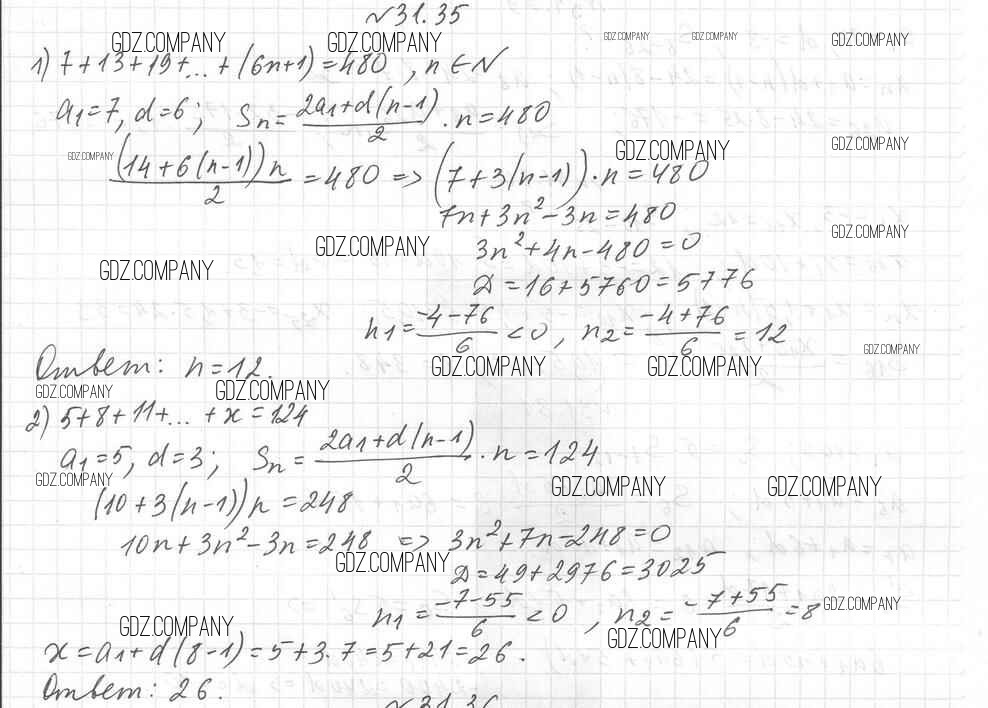 №31.35
GDZ.COMPANY GDZ.COMPANY GDZ.COMPANY GDZ.COMPANY GDZ.COMPANY
1) 7+13+19+...+(6n+1)=480, n∈N
a₁=7, d=6; Sₙ=(2a₁+d(n-1))/2·n=480
GDZ.COMPANY GDZ.COMPANY GDZ.COMPANY
((14+6(n-1))n)/2=480 => (7+3(n-1))·n=480
7n+3n²-3n=480
GDZ.COMPANY GDZ.COMPANY
3n²+4n-480=0
GDZ.COMPANY
Д=16+5760=5776
n₁=(-4-76)/6<0, n₂=(-4+76)/6=12
GDZ.COMPANY GDZ.COMPANY GDZ.COMPANY
Ответ: n=12.
GDZ.COMPANY GDZ.COMPANY
2) 5+8+11+...+x=124
a₁=5, d=3; Sₙ=(2a₁+d(n-1))/2·n=124
GDZ.COMPANY GDZ.COMPANY GDZ.COMPANY
(10+3(n-1))n=248
10n+3n²-3n=248 => 3n²+7n-248=0
GDZ.COMPANY
Д=49+2976=3025
n₁=(-7-55)/6<0, n₂=(-7+55)/6=8
GDZ.COMPANY GDZ.COMPANY GDZ.COMPANY
x=a₁+d(8-1)=5+3·7=5+21=26.
Ответ: 26.
№31.36